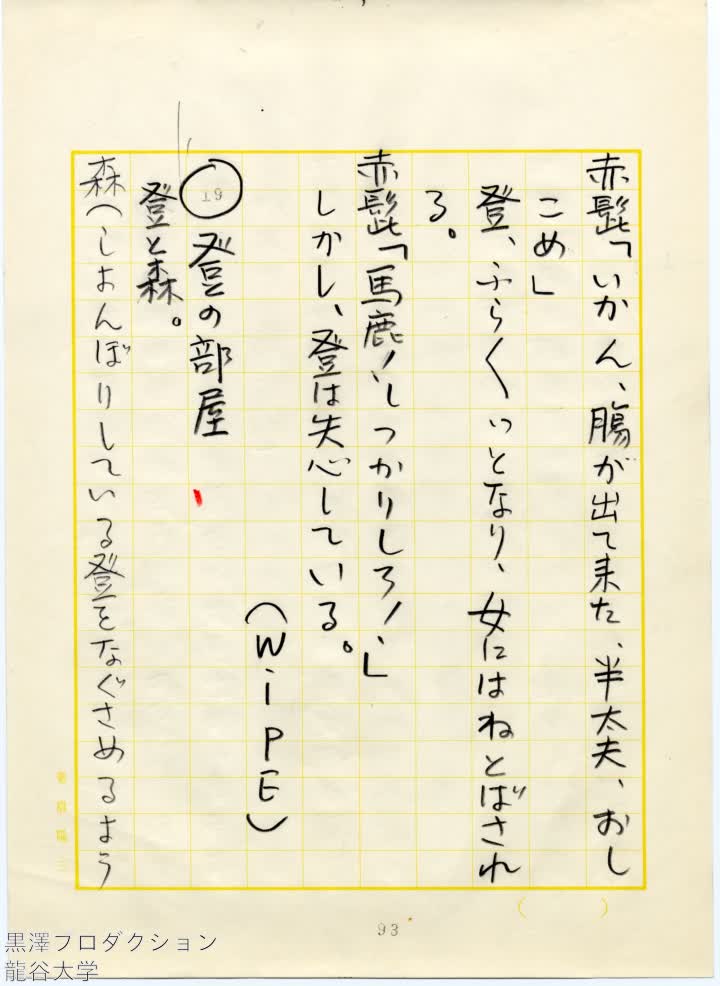 赤髭「いかん、腸が出て来た、半太夫、おし
こめ」
登、ふらくっとなり、女にはねとばされ
る。
赤髭「馬鹿！しっかりしろ！」
しかし、登は失心している。
（WiPE）
19 登の部屋
登と森。
森（しょんぼりしている登をなぐさめるよう
93
黒澤プロダクション
龍谷大学